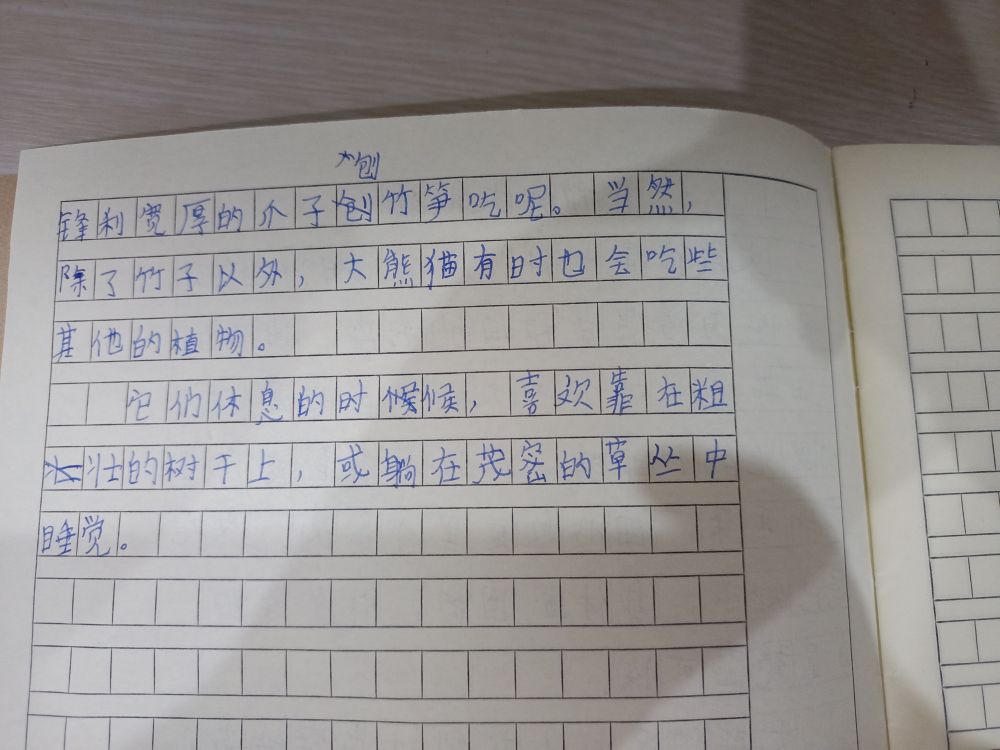 刨
锋利宽厚的爪子刨竹笋吃呢。当然，
除了竹子以外，大熊猫有时也会吃些
其他的植物。
它们休息的时候候，喜欢靠在粗
壮的树干上，或躺在茂密的草丛中
睡觉。